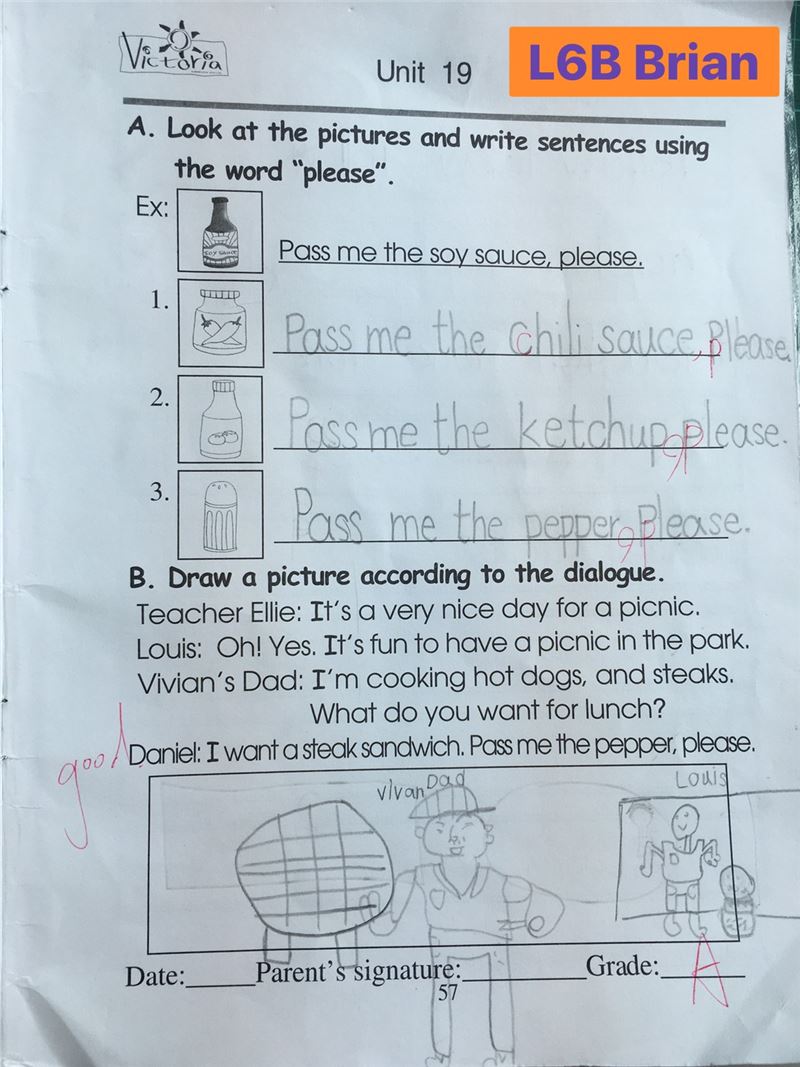 Victoria
Unit 19
L6B Brian
A. Look at the pictures and write sentences using
the word "please".
Ex:
SOY SAUCE
Pass me the soy sauce, please.
1.
Pass me the chili sauce, please.
2.
Pass me the ketchup, please.
3.
Pass me the pepper, please.
B. Draw a picture according to the dialogue.
Teacher Ellie: It's a very nice day for a picnic.
Louis: Oh! Yes. It's fun to have a picnic in the park.
Vivian's Dad: I'm cooking hot dogs, and steaks.
What do you want for lunch?
good
Daniel: I want a steak sandwich. Pass me the pepper, please.
vivan Dad
Louis
Date:_____Parent's signature:_________Grade:______
A
57